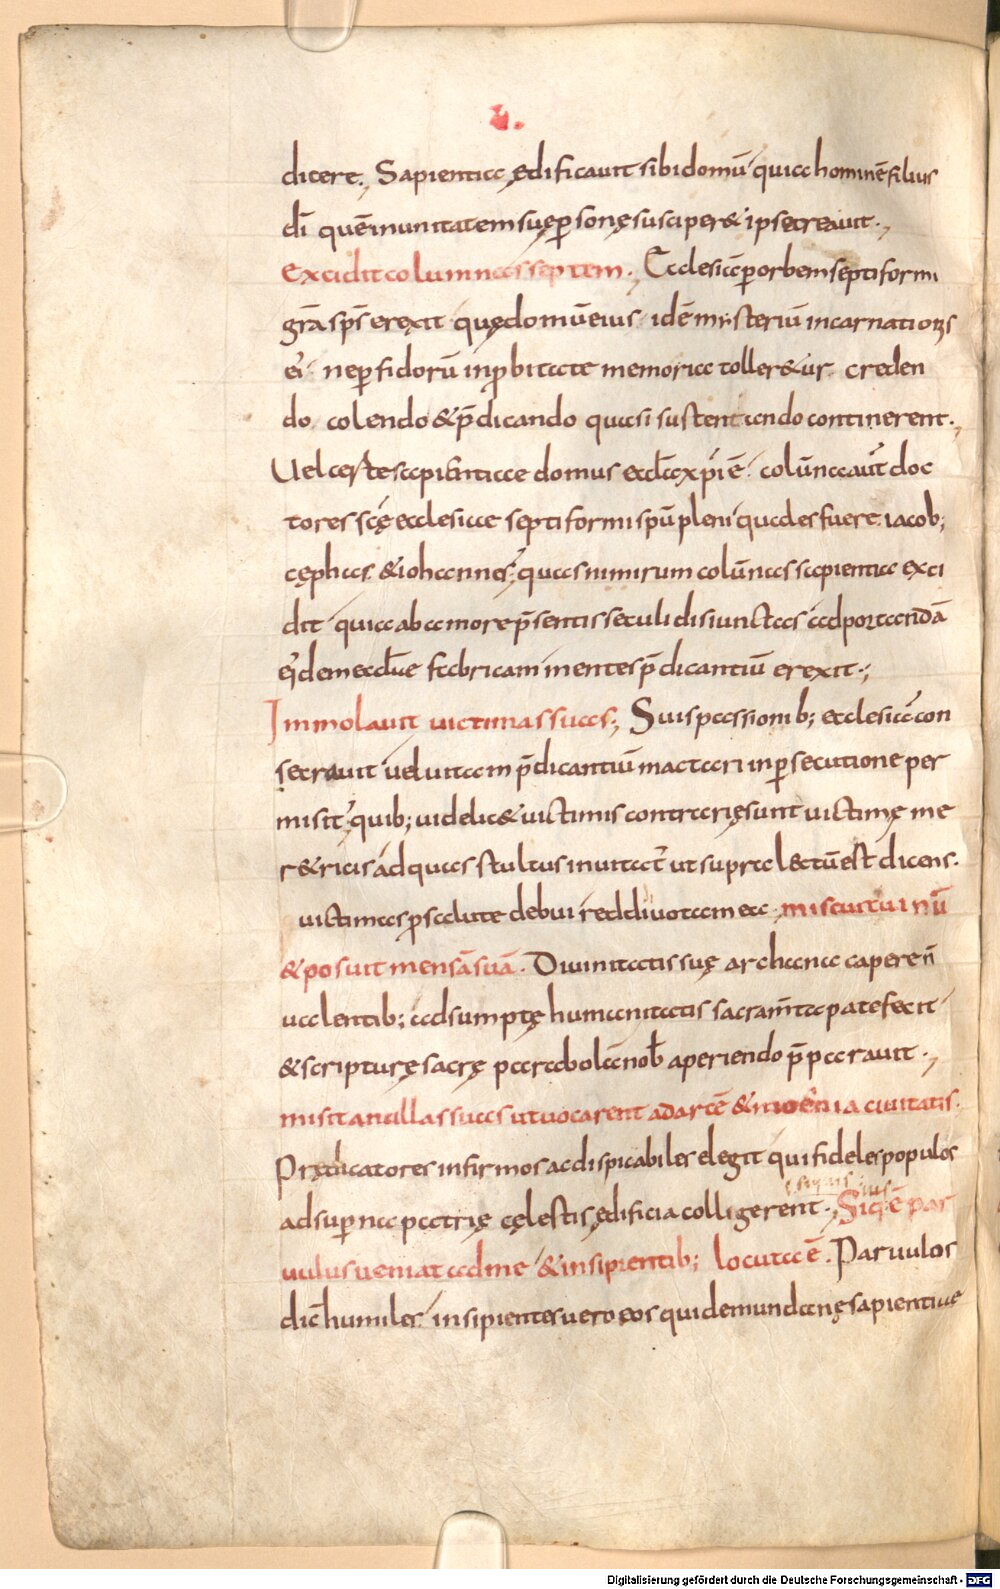 v.
dicere; Sapientia ędificavit sibi domū quia hominē filius
dī quē in unitatem suę ꝑsonę susciper& ipse creauit.,
Excidit columnas septem., Ecclesiā ꝑ orbem septiformi
grā sp̄s erexit quę domū eius idē mysterium incarnationis
ei ne ꝑfidorū inꝓbitate memoria toller&ur creden
do colendo & p̄dicando quasi sustentando continerent.,
Vel certe sapientiae domus eccla xp̄i ē columnae aut̄ doc
tores scę ecclesiae septiformi spū pleni quales fuere iacob;
cęphas & iohannes, quas nimirum colūnas sapientia exci
dit quia ab amore p̄sentis seculi disiunctas ad portandā
ei'dem eccliae fabricam mentes p̄dicantiū erexit.;
Immolauit uictimas suas; Suis passionib; ecclesiā con
secrauit uel uitam p̄dicantiū mactari in ꝑsecutione per
misit, quib; uidelic& uictimis contrarię sunt uictimę me
r&ricis ad quas stultus inuitat̄ ut supra lectū est dicens.
uictimas ꝓ salute debui reddi uota mea. miscuit uinū
& posuit mensā suā. Diuinitatis suę archana capere n̄
ualentib; adsumptę humanitatis sacram̄ta patefecit
& scripturę sacrę parabolā nob̄ aperiendo p̄parauit.,
misit ancillas suas ut uocarent ad arcē & moenia ciuitatis.
Prędicatores infirmos ac dispicabiles elegit qui fideles populos
ad suꝑna patrię cęlestis ędificia colligerent., Siq:ē par
uulus ueniat ad me & insipientib; locuta ē. Paruulos
dic̄ humiles insipientes uero eos qui de mundanę sapientiae